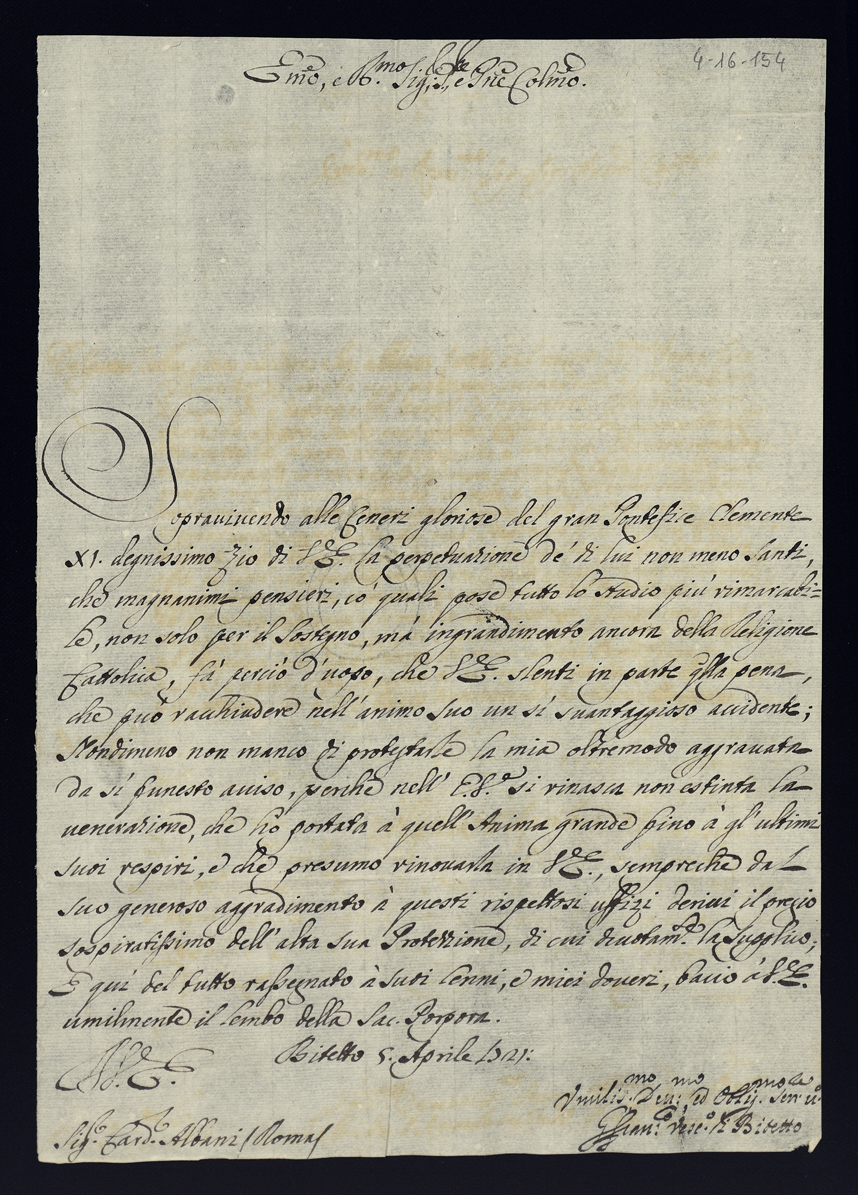 4-16-154
Emo, e Rmo Sig.r, e Pne Colmo.
Sopravivendo alle Ceneri gloriose del gran Pontefice Clemente
XI. degnissimo zio di V.E. la perpetuazione de' di lui non meno santi,
che magnanimi pensieri, co' quali pose tutto lo studio più rimarcabi-
le, non solo per il sostegno, mà ingrandimento ancora della Religione
Cattolica, fà perciò d'uopo, che V.E. slenti in parte qlla pena,
che può racchiudere nell'animo suo un sì svantaggioso accidente;
Nondimeno non manco di protestarle la mia oltremodo aggravata
da sì funesto aviso, perche nell' E.V. si rinasca non estinta la
venerazione, che hò portata à quell'Anima grande fino à gl'ultimi
suoi respiri, e che presumo rinovarla in V.E., sempreche dal
suo generoso aggradimento à questi rispettosi uffizi derivi il precio
sospiratissimo dell'alta sua Protezzione, di cui divotam.te la supplico;
E quì del tutto rassegnato à suoi cenni, e miei doveri, bacio à V.E.
umilmente il lembo della Sac. Porpora.
Bitetto 5. Aprile 1721:
V.E.
Umilis.mo Dev.mo, ed Obbli.mo Ser.re v.o
Vesc.o di Bitetto
Sig.r Card. Albani / Roma /